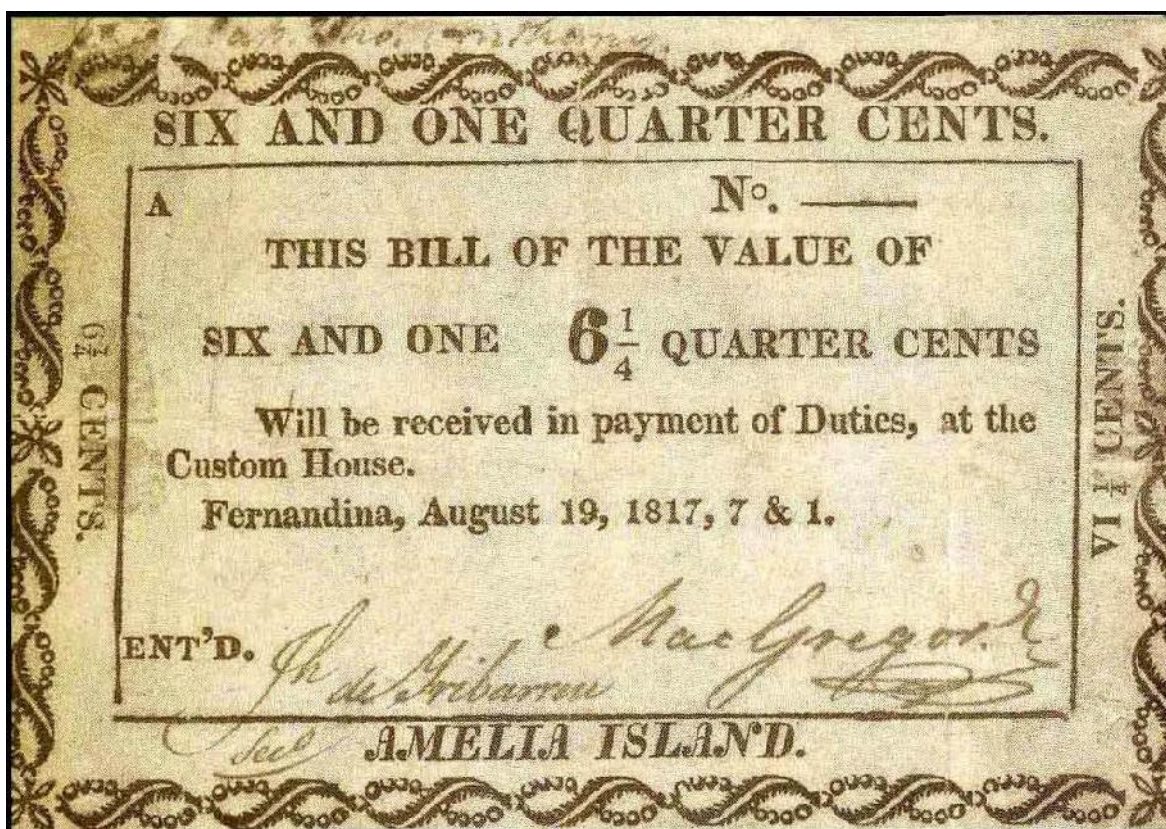 SIX AND ONE QUARTER CENTS.
A
Nº.
THIS BILL OF THE VALUE OF
SIX AND ONE 6 1/4 QUARTER CENTS
Will be received in payment of Duties, at the
Custom House.
Fernandina, August 19, 1817, 7 & 1.
ENT'D.
MacGregor
Jh
de Yribarren
Sec
AMELIA ISLAND.
6 1/4 CENTS.
VI 1/4 CENTS.